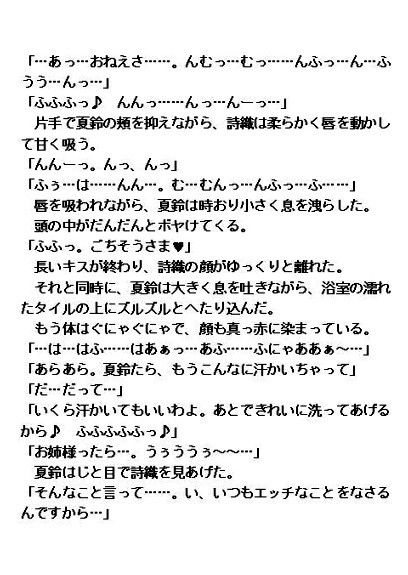 「…あっ…おねえさ……。んむっ…むっ……んふっ…ん…ふ
うう…んっ…」
「ふふふっ♪　んんっ……んっ…んーっ…」
　片手で夏鈴の頬を抑えながら、詩織は柔らかく唇を動かし
て甘く吸う。
「んんーっ。んっ、んっ」
「ふぅ…は……んん…。む…むんっ…んふっ…ふ……」
　唇を吸われながら、夏鈴は時おり小さく息を洩らした。
　頭の中がだんだんとボヤけてくる。
「ふふっ。ごちそうさま♥」
　長いキスが終わり、詩織の顔がゆっくりと離れた。
　それと同時に、夏鈴は大きく息を吐きながら、浴室の濡れ
たタイルの上にズルズルとへたり込んだ。
　もう体はぐにゃぐにゃで、顔も真っ赤に染まっている。
「…は…はふ……はあぁっ…あふ……ふにゃああぁ～…」
「あらあら。夏鈴たら、もうこんなに汗かいちゃって」
「だ…だって…」
「いくら汗かいてもいいわよ。あとできれいに洗ってあげる
から♪　ふふふふふっ♪」
「お姉様ったら…。うぅううぅ～～…」
　夏鈴はじと目で詩織を見あげた。
「そんなこと言って……。い、いつもエッチなことをなさる
んですから…」